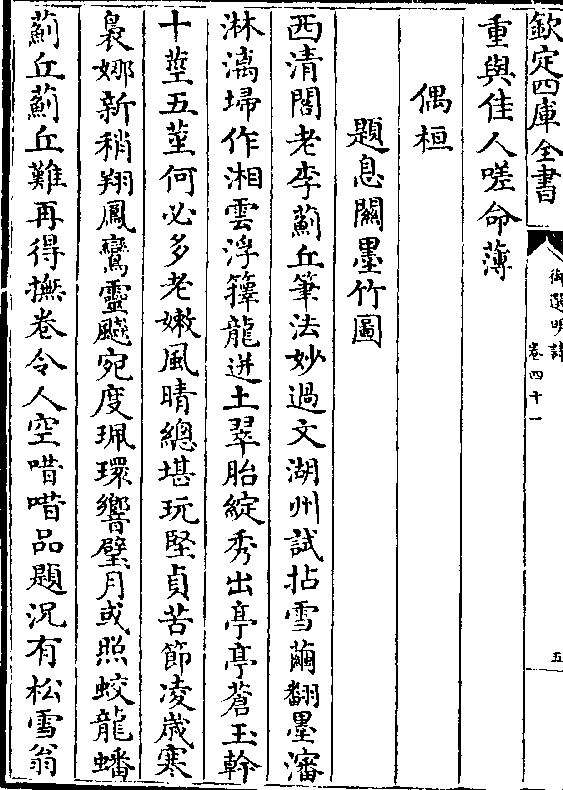 欽定四庫全書
御選明詩
卷四十一
五
重與佳人嗟命薄
偶桓
題息闗墨竹圖
西清閣老李薊丘筆法妙過文湖州試拈雪繭翻墨瀋
淋漓埽作湘雲浮籜龍迸土翠胎綻秀出亭亭蒼玉幹
十莖五莖何必多老嫩風晴總堪玩堅貞苦節凌歲寒
裊娜新稍翔鳳鸞靈飈宛度珮環響璧月或照蛟龍蟠
薊丘薊丘難再得撫卷令人空唶唶品題况有松雪翁